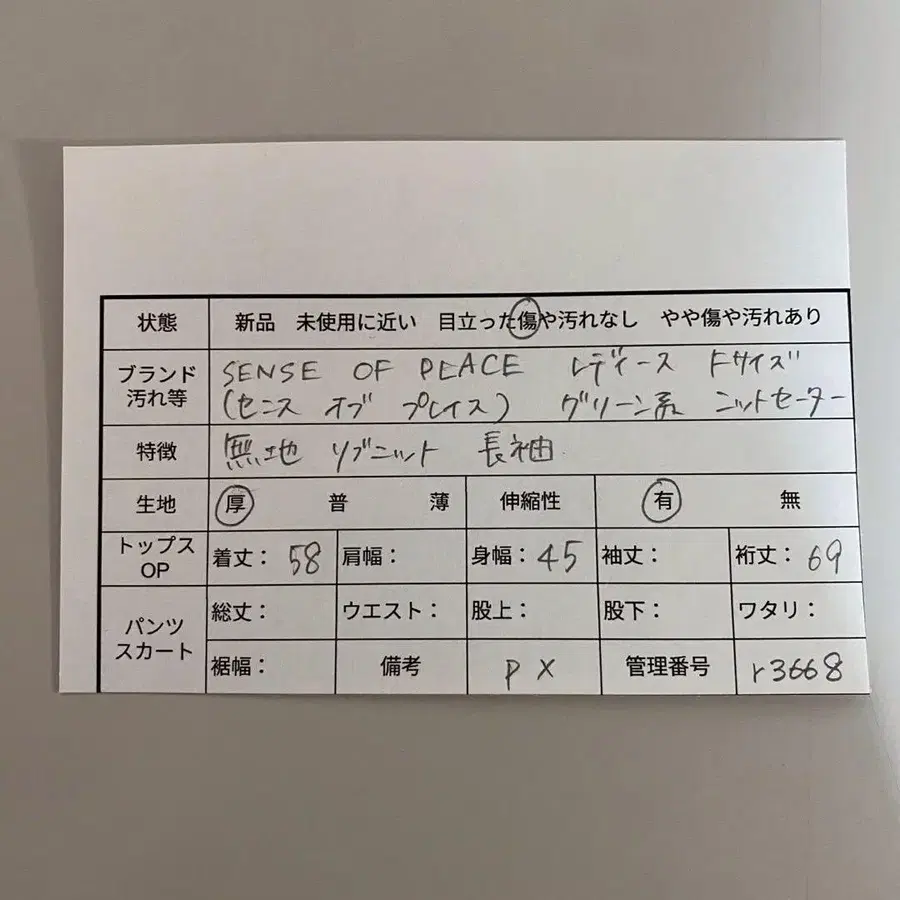 状態 新品 未使用に近い 目立った傷や汚れなし やや傷や汚れあり
ブランド 汚れ等 SENSE OF PEACE レディース Fサイズ
(センス オブ プレイス) グリーン系 ニットセーター
特徴 無地 リブニット 長袖
生地 厚 普 薄 伸縮性 有 無
トップス OP 着丈: 58 肩幅: 身幅: 45 袖丈: 裄丈: 69
パンツ スカート 総丈: ウエスト: 股上: 股下: ワタリ:
裾幅: 備考 PX 管理番号 r3668